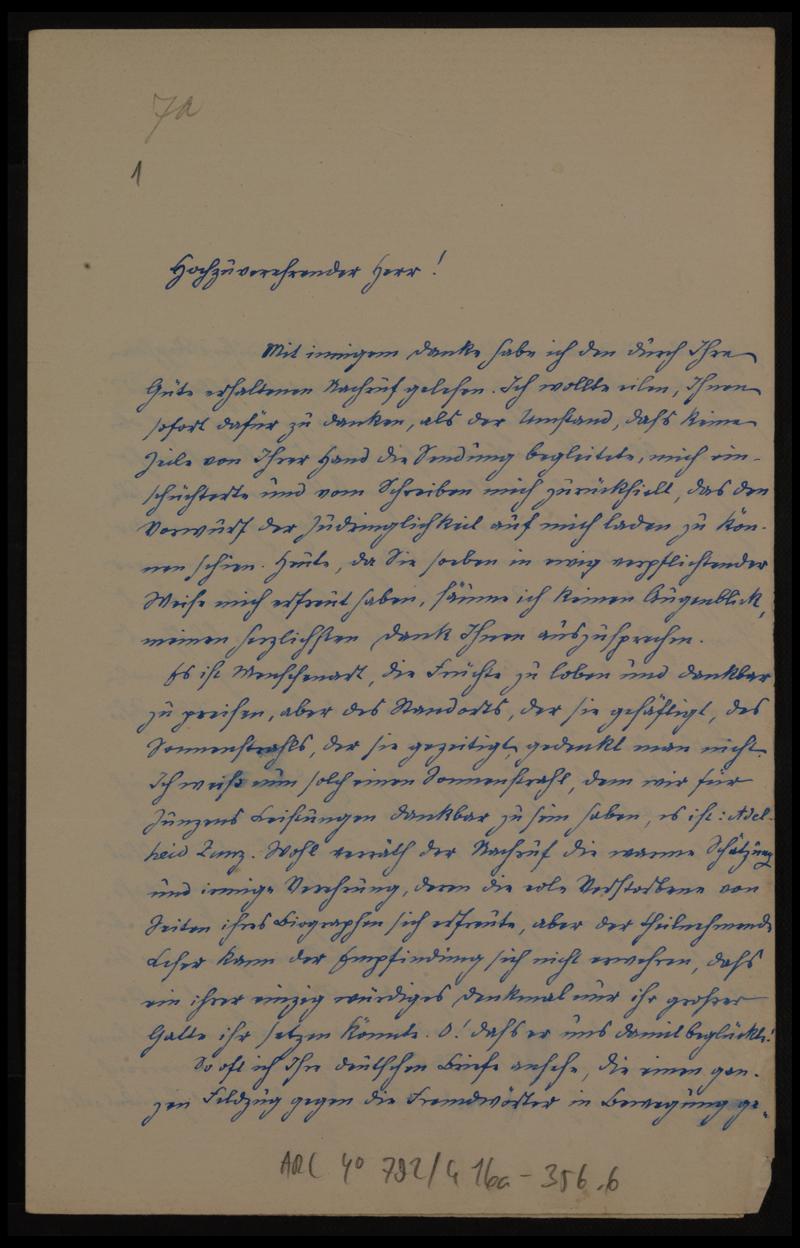 7a
1
Hochzuverehrender Herr!
Mit innigem Danke habe ich den durch Ihre
Güte erhaltenen Nachruf gelesen. Ich wollte eilen, Ihnen
sofort dafür zu danken, als der Umstand, dafs keine
Zeile von Ihrer Hand die Sendung begleitete, mich ein-
schüchterte und vom Schreiben mich zurückhielt, das den
Vorwurf der Zudringlichkeit auf mich laden zu kön-
nen schien. Heute, da Sie soeben in ewig verpflichtender
Weise mich erfreut haben, säume ich keinen Augenblick,
meinen herzlichsten Dank Ihnen auszusprechen.
Es ist Menschenart, die Früchte zu loben und dankbar
zu preisen, aber des Standorts, der sie gekräftigt, des
Sonnenstrahls, der sie gezeitigt, gedenkt man nicht.
Ich weiß nun solch einen Sonnenstrahl, dem wir für
Zunzens Leistungen dankbar zu sein haben, es ist: Adel-
heid Zunz. Wohl verräth der Nachruf die warme Schätzung
und innige Verehrung, deren die edle Verstorbene von
Seiten ihres Biographen sich erfreute, aber der theilnehmende
Leser kann der Empfindung sich nicht erwehren, dafs
ein ihrer einzig würdiges Denkmal nur ihr grofser
Gatte ihr setzen könnte. O! dafs er uns damit beglückte!
So oft ich Ihre deutschen Briefe ansehe, die einen gan-
zen Feldzug gegen die Fremdwörter in Bewegung ge-
ARC 4° 792/G 16a - 356.6